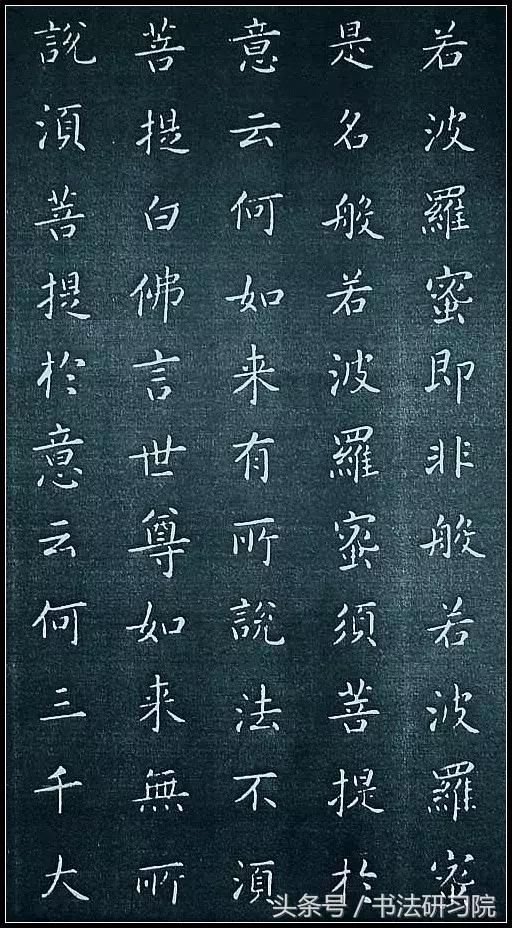 若波羅蜜即非般若波羅蜜
是名般若波羅蜜須菩提於
意云何如来有所說法不須
菩提白佛言世尊如来無所
說須菩提於意云何三千大
头条号/书法研习院